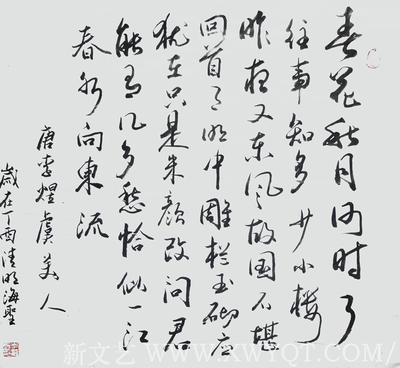 春花秋月何时了
往事知多少小楼
昨夜又东风故国不堪
回首月明中雕栏玉砌应
犹在只是朱颜改问君
能有几多愁恰似一江
春水向東流
唐李煜虞美人
歲在丁酉清明海聖
新文艺